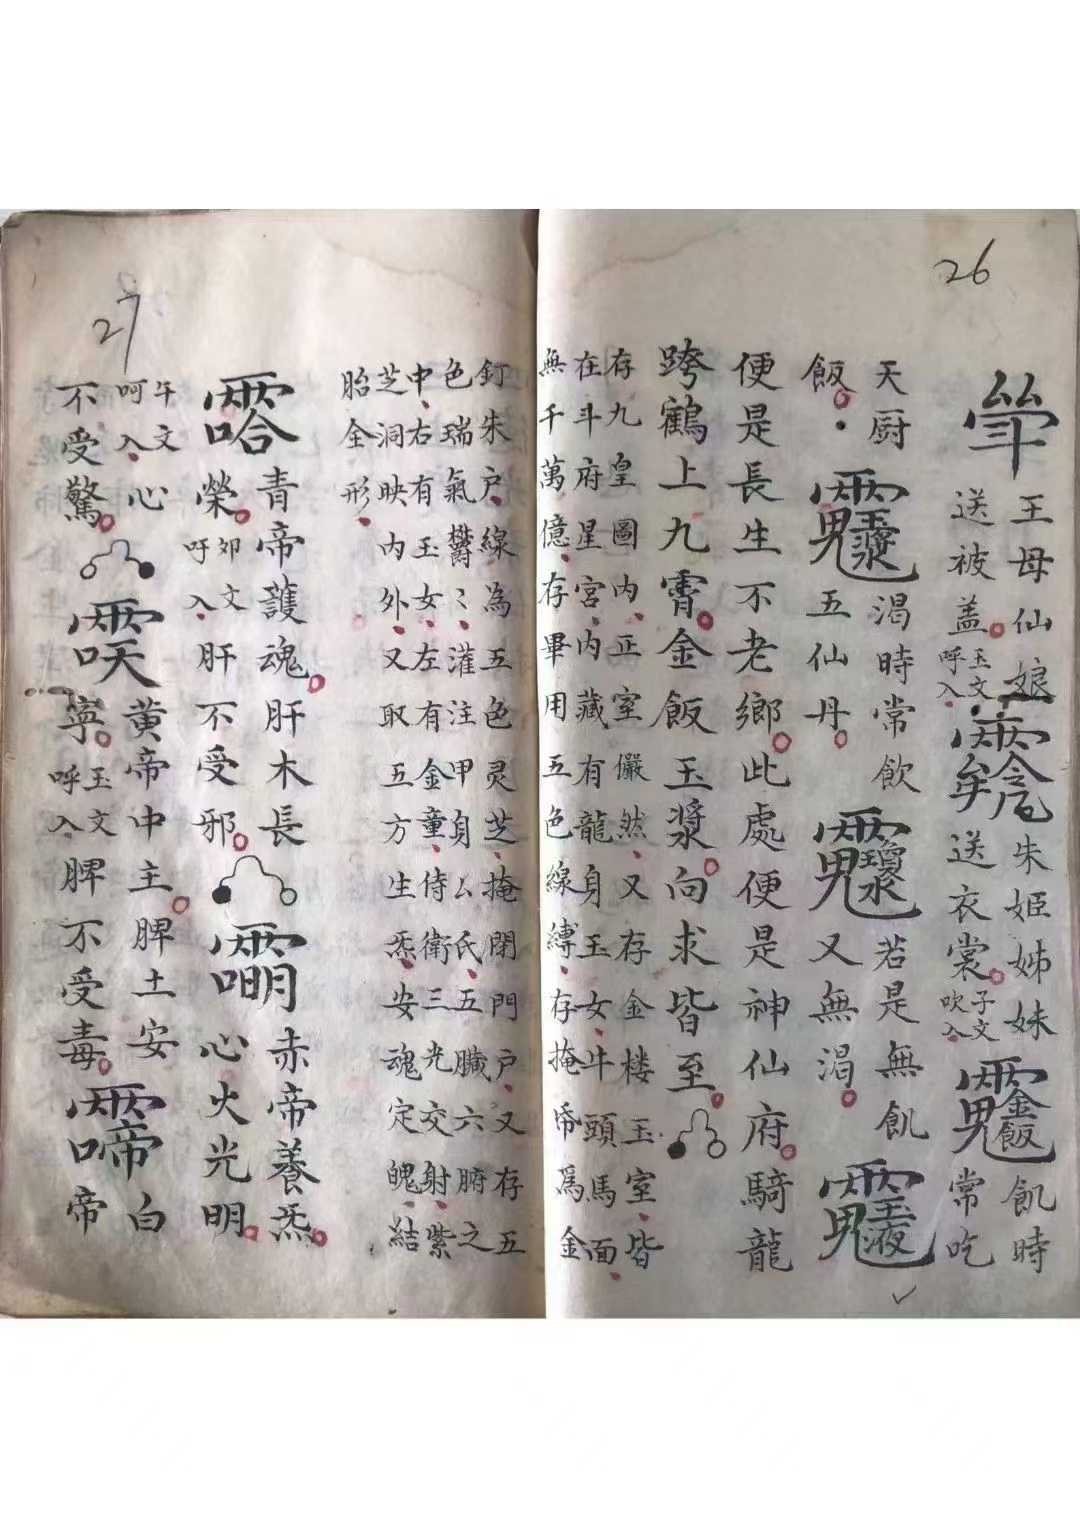 26
王母仙娘
送被盖
玉文
呼入
朱姬姊妹
送衣裳
子文
吹入
飢時
常吃
天厨
飯
渴時常飲
五仙丹
若是無飢
又無渴
便是長生不老鄉此處便是神仙府騎龍
跨鶴上九霄金飯玉漿向求皆至
存九皇圖內正室儼然又存金楼玉室皆
在斗府星宮內藏有龍身玉女牛頭馬面
無千萬億存畢用五色線縛存掩帋爲金
釘朱户線為五色灵芝掩閉門户又存五
色瑞氣欝〻灌注甲身厶氏五臟六腑之
中右有玉女左有金童侍衛三光交射紫
芝洞映内外又取五方生炁安魂定魄結
胎全形
27
青帝護魂肝木長
榮
卯文
吁入
肝不受邪
赤帝養炁
心火光明
午文
呵入
心
不受驚
黄帝中主脾土安
寧
玉文
呼入
脾不受毒
白
帝